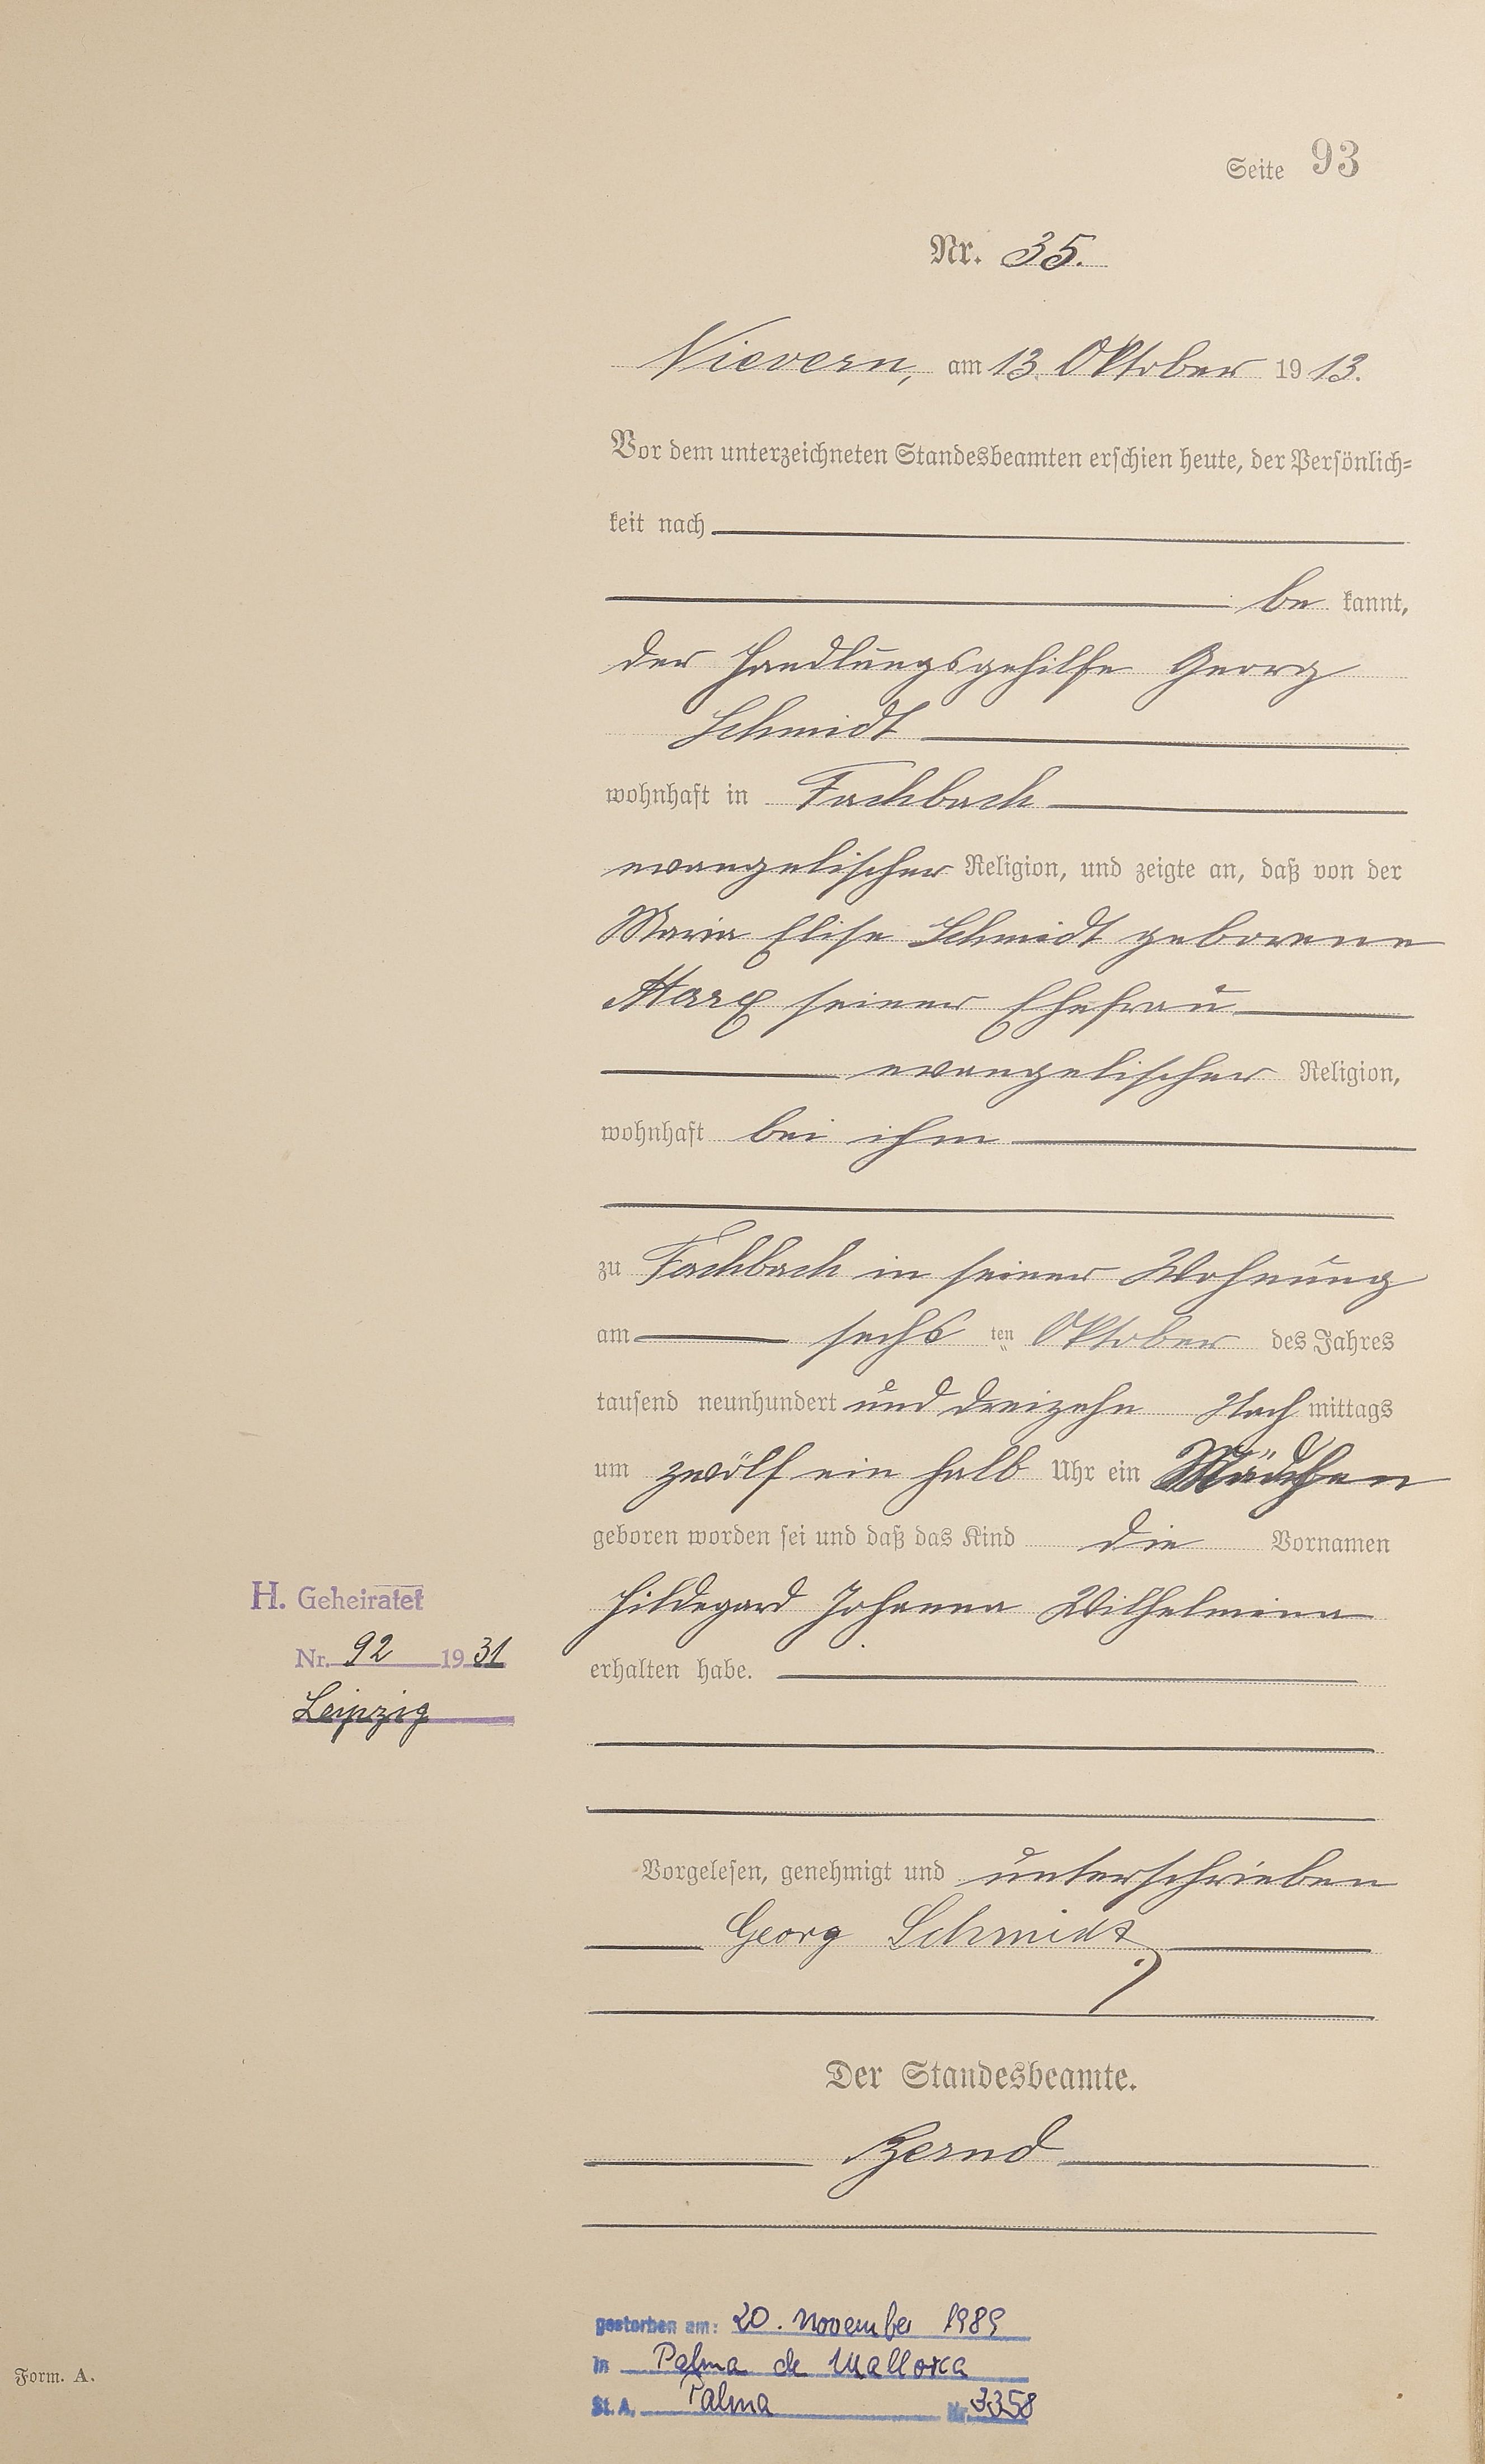 Seite 93
Nr. 35.
Nievern, am 13. Oktober 1913.
Vor dem unterzeichneten Standesbeamten erschien heute, der Persönlich=
keit nach
be kannt,
der Handlungsgehilfe Georg
Schmidt
wohnhaft in Fachbach
evangelischer Religion, und zeigte an, daß von der
Maria Elise Schmidt geborene
Marx seiner Ehefrau
evangelischer Religion,
wohnhaft bei ihm
zu Fachbach in seiner Wohnung
am sechs ten Oktober des Jahres
tausend neunhundert und dreizehn Nach mittags
um zwölf ein halb Uhr ein Mädchen
geboren worden sei und daß das Kind die Vornamen
Hildegard Johanna Wilhelmina
erhalten habe.
H. Geheiratet
Nr. 92 1931
Leipzig
Vorgelesen, genehmigt und unterschrieben
Georg Schmidt
Der Standesbeamte.
Bernd
gestorben am: 20. November 1989
in Palma de Mallorca
St. A. Palma Nr. 3358
Form. A.